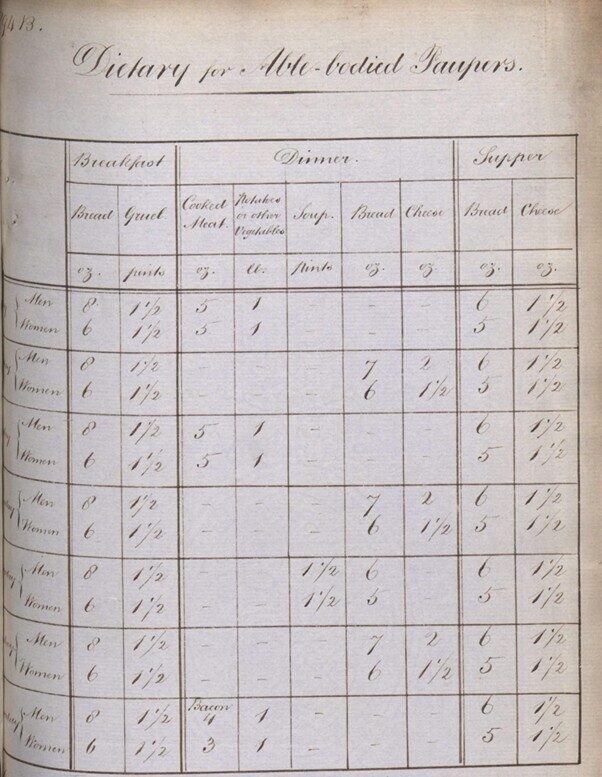 Dietary for Able-bodied Paupers.
Breakfast Dinner. Supper
Bread Gruel Cooked Meat. Potatoes or other Vegetables Soup. Bread Cheese Bread Cheese
oz. pints oz. lb. pints oz. oz. oz. oz.
Men 8 1 1/2 5 1 - - - 6 1 1/2
Women 6 1 1/2 5 1 - - - 5 1 1/2
Men 8 1 1/2 - - - 7 2 6 1 1/2
Women 6 1 1/2 - - - 6 1 1/2 5 1 1/2
Men 8 1 1/2 5 1 - - - 6 1 1/2
Women 6 1 1/2 5 1 - - - 5 1 1/2
Men 8 1 1/2 - - - 7 2 6 1 1/2
Women 6 1 1/2 - - - 6 1 1/2 5 1 1/2
Men 8 1 1/2 - - 1 1/2 6 - 6 1 1/2
Women 6 1 1/2 - - 1 1/2 5 - 5 1 1/2
Men 8 1 1/2 - - - 7 2 6 1 1/2
Women 6 1 1/2 - - - 6 1 1/2 5 1 1/2
Bacon
Men 8 1 1/2 4 1 - - - 6 1 1/2
Women 6 1 1/2 3 1 - - - 5 1 1/2